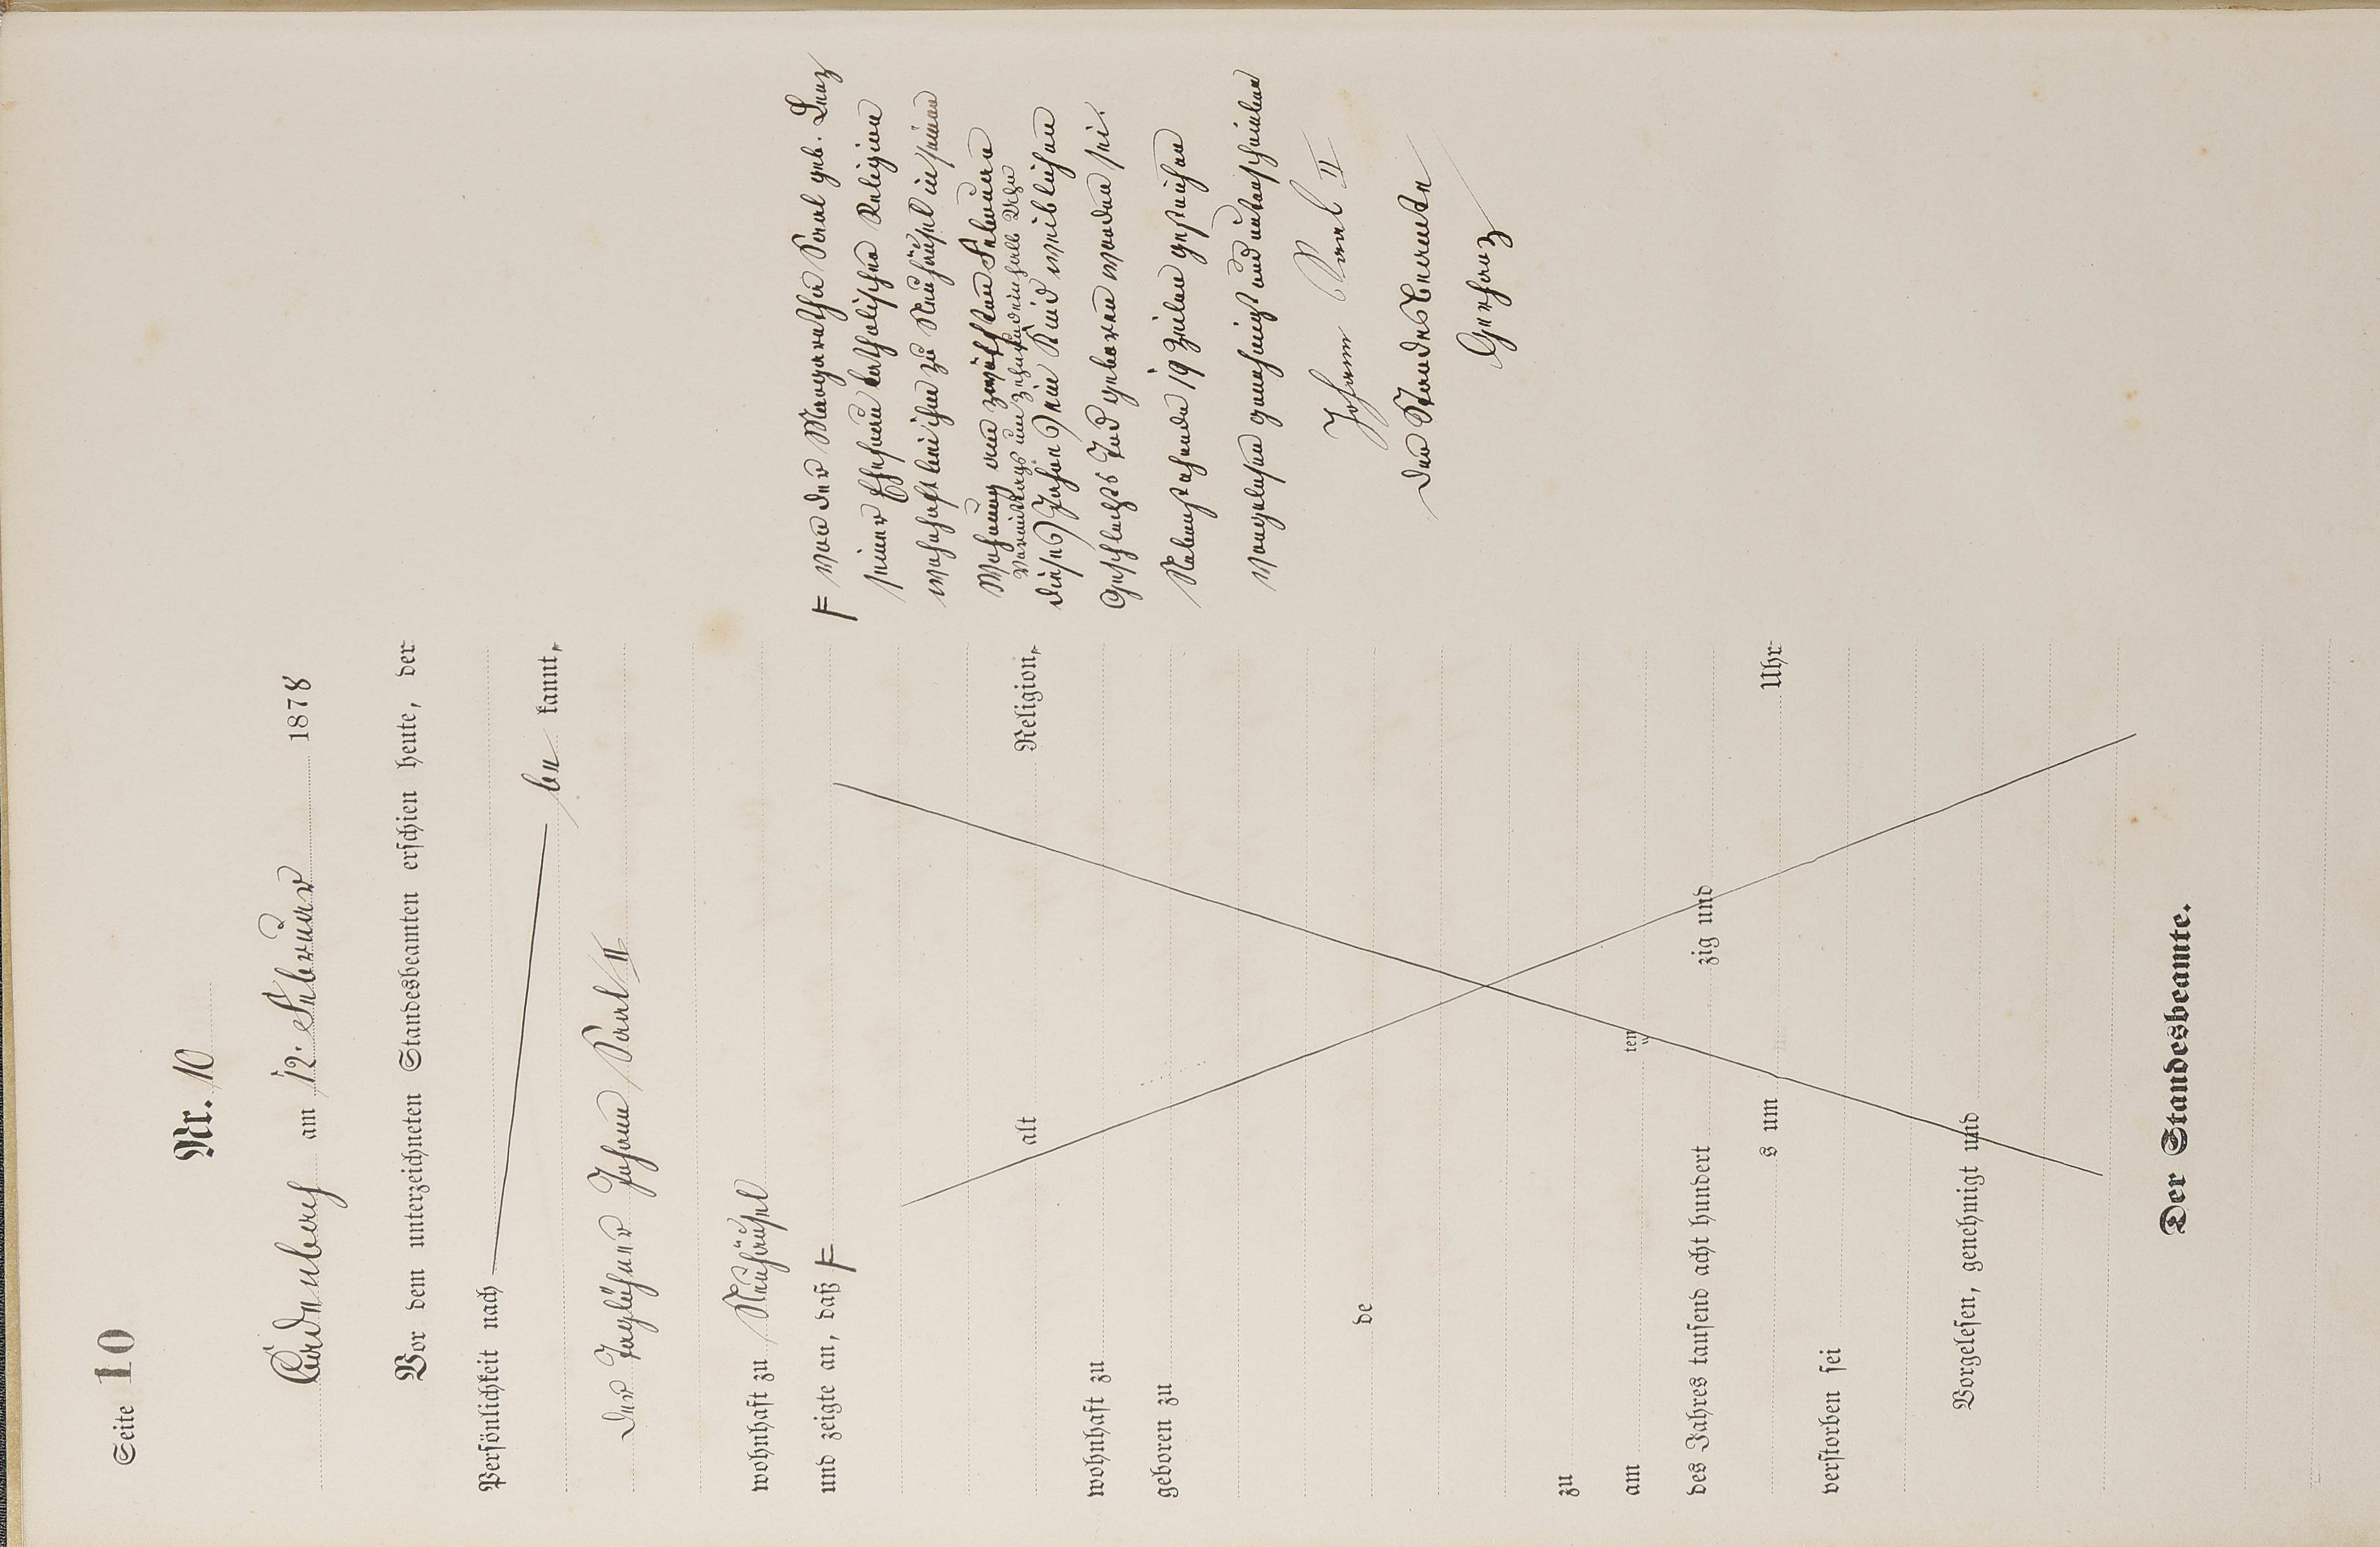 Seite 10
Nr. 10
Cadenbach am 12. Februar 1878
Vor dem unterzeichneten Standesbeamten erschien heute, der
Persönlichkeit nach be kannt,
der Taglöhner Johann Paul II
wohnhaft zu Neuhäusel
und zeigte an, daß F
alt Religion,
wohnhaft zu
geboren zu
de
zu
am ten
des Jahres tausend acht hundert zig und
s um Uhr
verstorben sei
Vorgelesen, genehmigt und
Der Standesbeamte.
F von der Margaretha Paul geb. Lenz
seiner Ehefrau katholischer Religion
wohnhaft bei ihm zu Neuhäusel in seiner
Wohnung am zwölften Februar
Vormittags um zehn ein halb Uhr
dieses Jahres ein Kind weiblichen
Geschlechts Tod geboren worden sei.
Nebenstehende 19 Zeilen gestrichen
vorgelesen genehmigt und unterschrieben
Johann Paul II
Der Standesbeamte